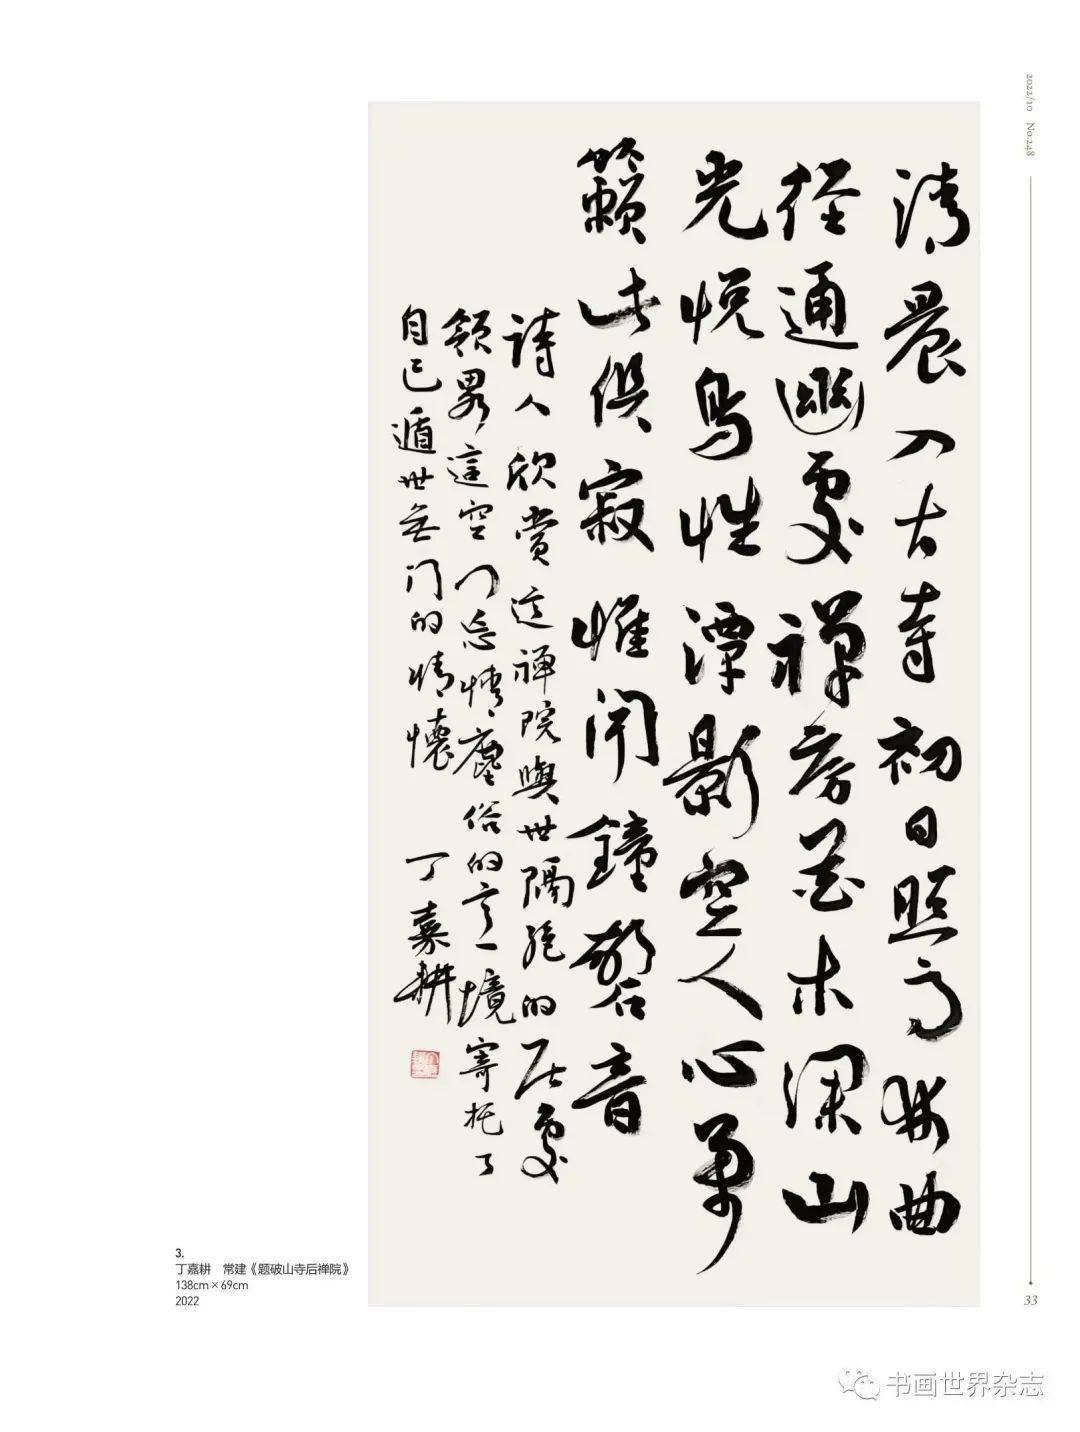 2022/10 No.248
清晨入古寺初日照高林曲
徑通幽處禪房花木深山
光悦鳥性潭影空人心萬
籟此俱寂惟闻鐘磬音
詩人欣賞這禪院與世隔絶的居處
領畧這空门忘情塵俗的意境寄托了
自己遁世無门的情懷 丁嘉耕
3.
丁嘉耕 常建《题破山寺后禅院》
138cm×69cm
2022
33
书画世界杂志